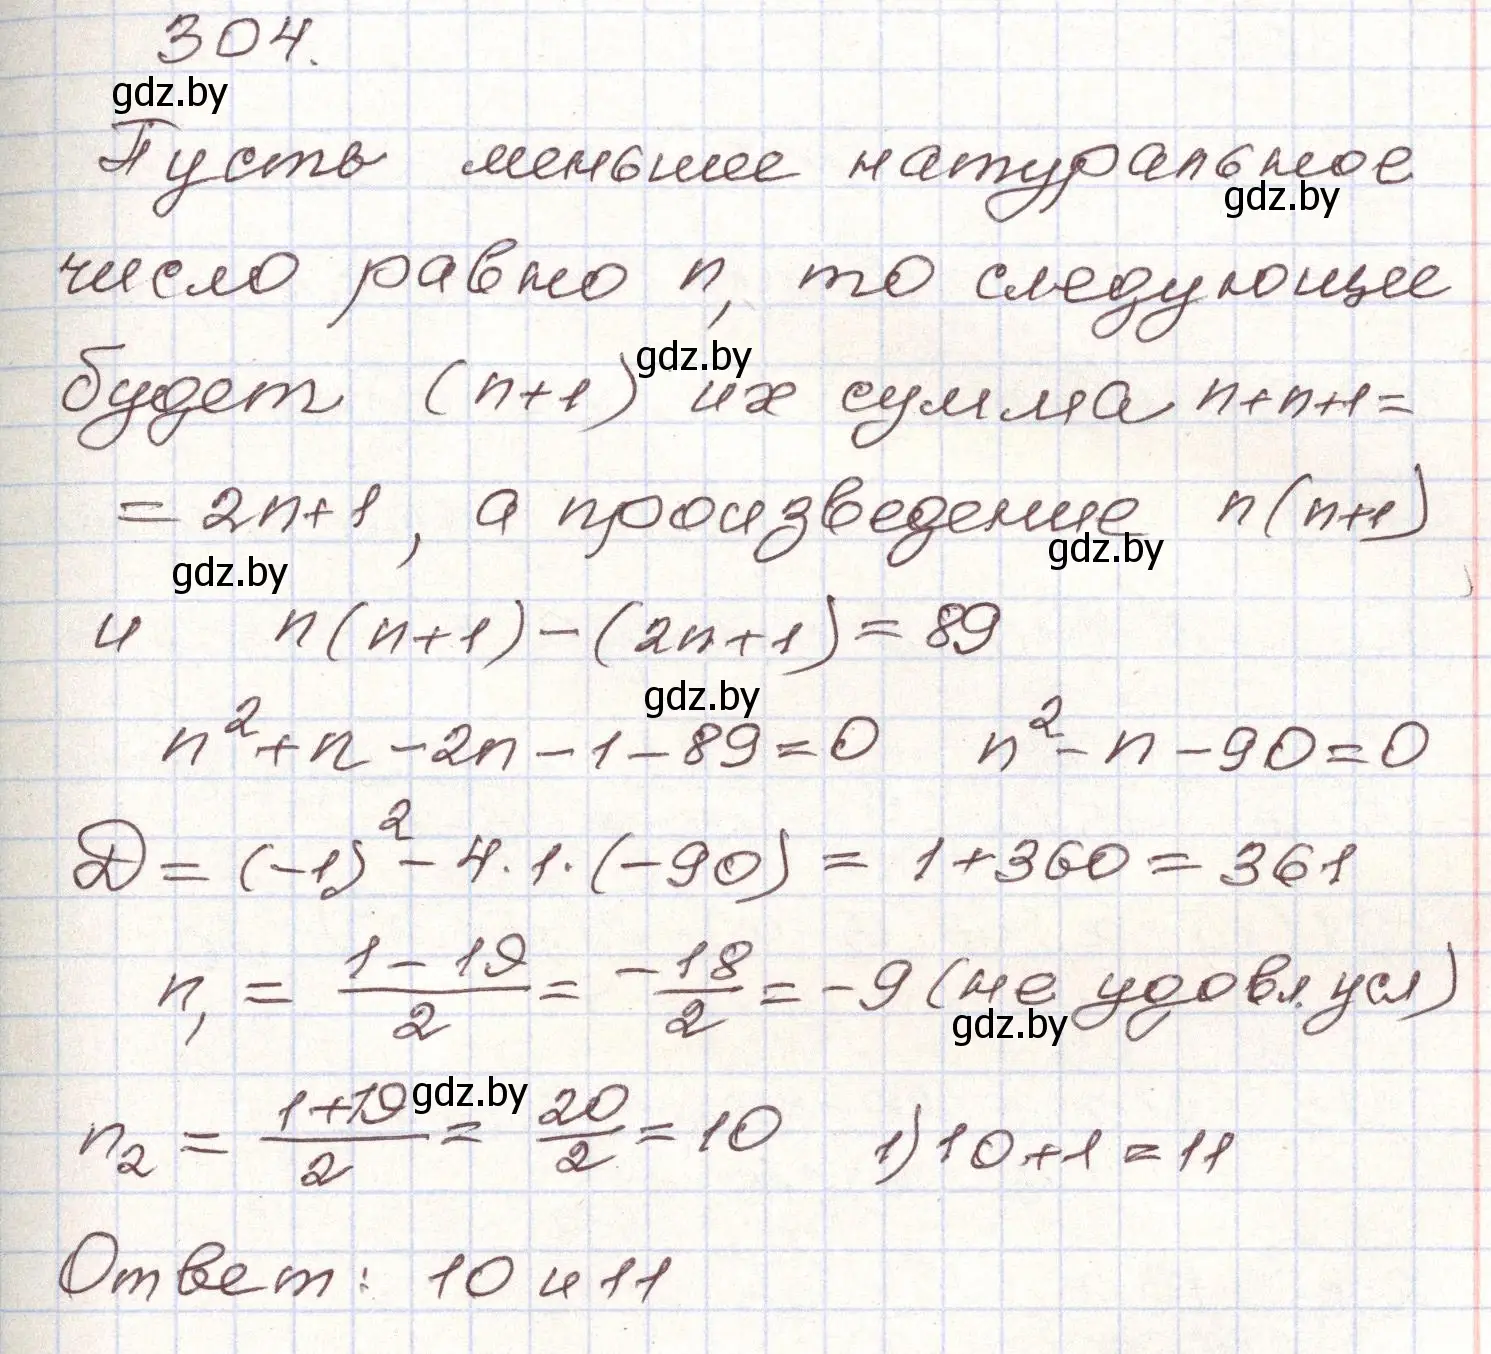 304.
gdz.by
Пусть меньшее натуральное
gdz.by
число равно n, то следующее
gdz.by
будет (n+1) их сумма n+n+1=
=2n+1, а произведение n(n+1)
gdz.by gdz.by
и n(n+1)-(2n+1)=89
gdz.by
n²+n-2n-1-89=0 n²-n-90=0
Д=(-1)²-4·1·(-90)=1+360=361
n₁ = (1-19)/2 = -18/2 = -9 (не удовл. усл)
gdz.by
gdz.by
n₂ = (1+19)/2 = 20/2 = 10 1) 10+1=11
Ответ: 10 и 11